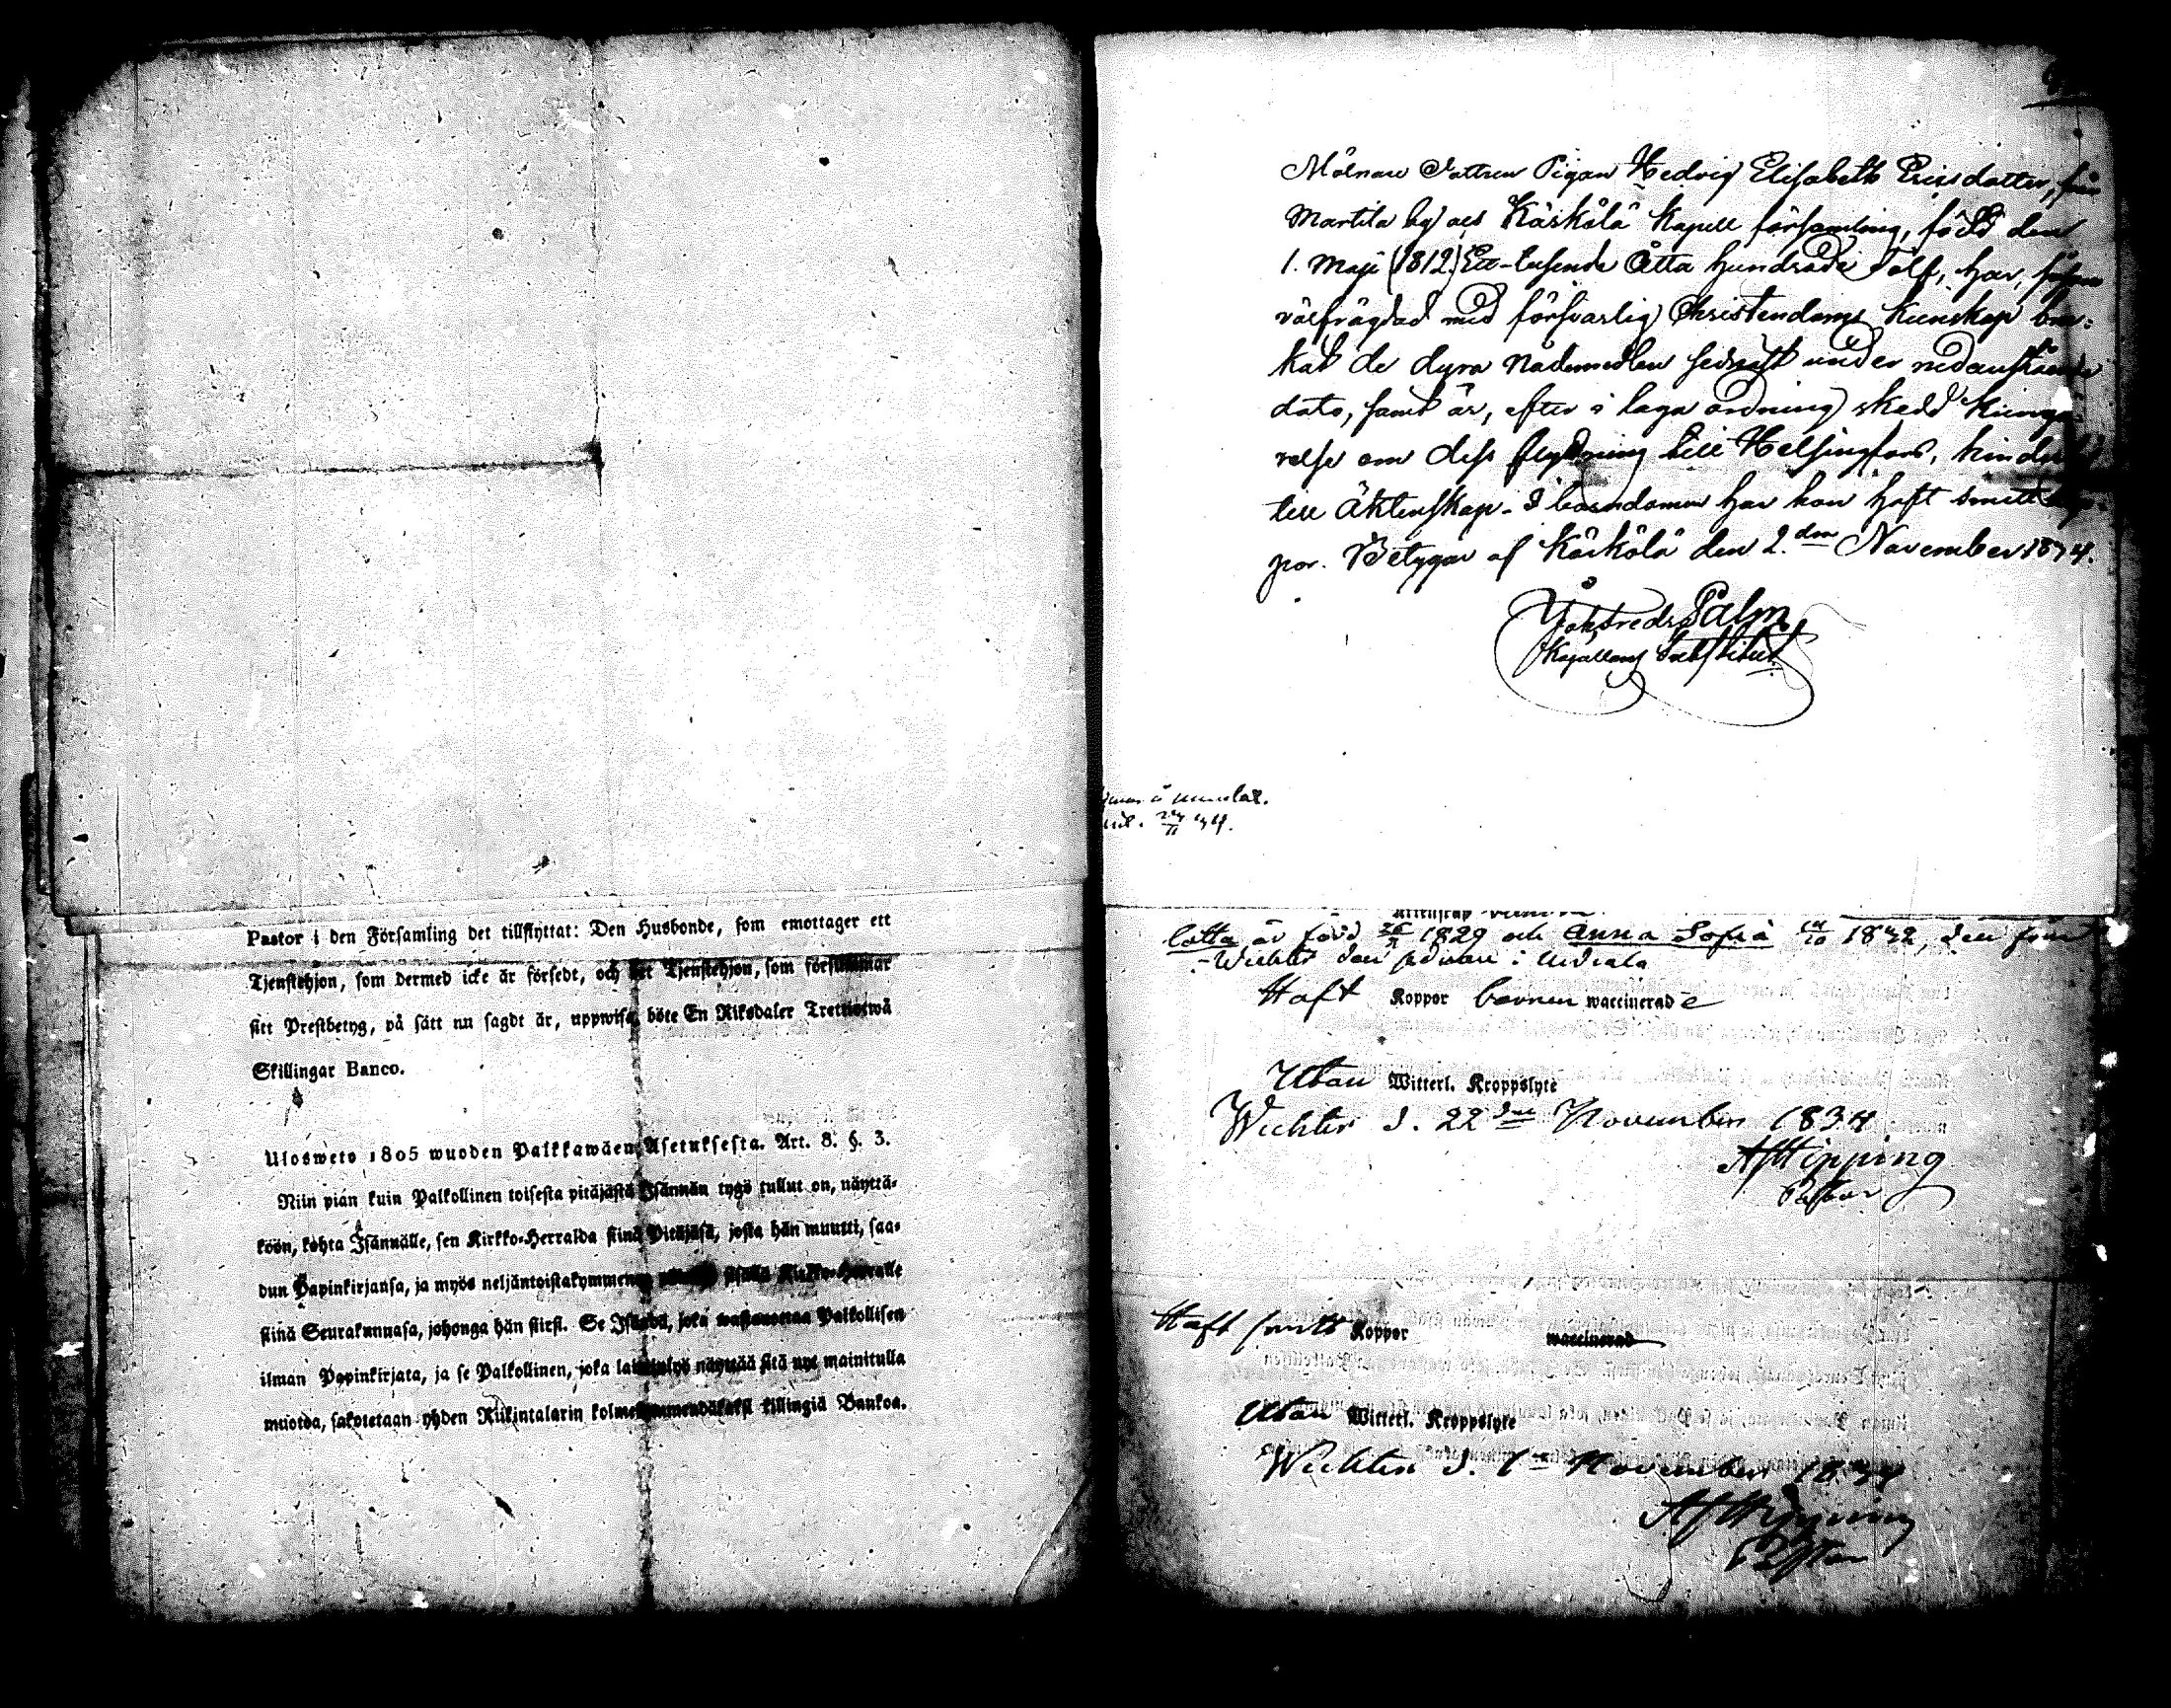 Pastor i den Församling det tillflyttat: Den Husbonde, som emottager ett
Tjenstehjon, som dermed icke är försedt, och det Tjenstehjon, som försummar
sitt Prestbetyg, på sätt nu sagdt är, uppwisa, böte En Riksdaler Trettiotwå
Skillingar Banco.
Ulosweto 1805 wuoden Palkkawäen Asetuksesta. Art. 8. §. 3.
Niin pian kuin Palkollinen toisesta pitäjästä Isännän tygö tullut on, näyttä-
köön, kohta Isännälle, sen Kirkko-Herralda siinä Pitäjäsä, josta hän muutti, saa-
dun Papinkirjansa, ja myös neljäntoistakymmenen Kirkko-Herralle
siinä Seurakunnasa, johonga hän siirsi. Se Isändä, joka wastanottaa Palkollisen
ilman Papinkirjata, ja se Palkollinen, joka laiminlyö näyttää sitä nyt mainitulla
muotoa, sakotetaan yhden Riikintalarin kolmekymmendäkaksi killingiä Bankoa.
Mölnare Dottren Pigan Hedvig Elisabeth Ericsdotter, från
Martila by af Kärkölä Kapell församling, född den
1. Maji (1812.) Ett-tusende Åtta hundrade Tolf, har,
välfrägdad med försvarlig Christendoms Kunskap bru-
kat de dyra Nådemedlen sednast under nedanstående
dato, samt är, efter i laga ordning skedd kungö-
relse om dess flyttning till Helsingfors, hinders
till Äktenskap. I barndomen har hon haft smittkop-
por. Betygar af Kärkölä den 2.den November 1834.
Palm
Kapellans Substitut
34.
Lotta är född 1829 och Anna Sofia 1832, den förra
i Wichtis den sednare i
Haft Koppor barnen waccinerade
Utan Witterl. Kroppslyte
Wichtis d. 22dne November 1834
AJ Hipping
Pastor
Haft Koppor waccinerad
Utan Witterl. Kroppslyte
Wichtis d. 1 November 1834
AJ Hipping
Pastor